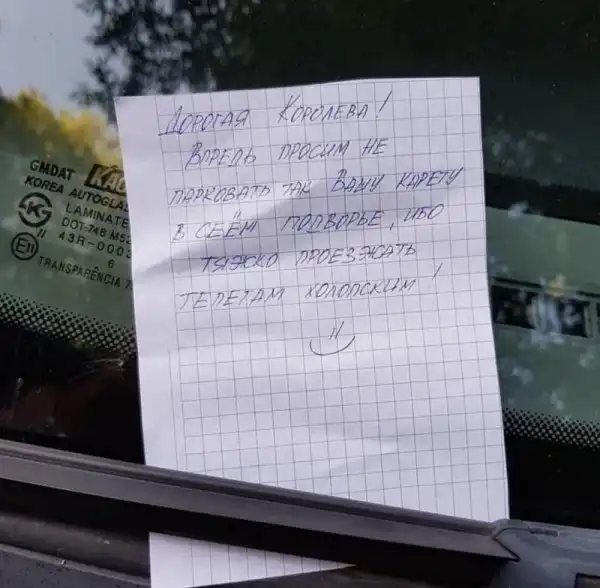 GMDAT KAC
KOREA AUTOGLA
LAMINATE
DOT-748 M5
43R-000
E11
6
TRANSPARENCIA 7
Дорогая Королева!
Впредь просим не
парковать так Вашу карету
в сеём подворье, ибо
тяжко проезжать
телегам холопским!